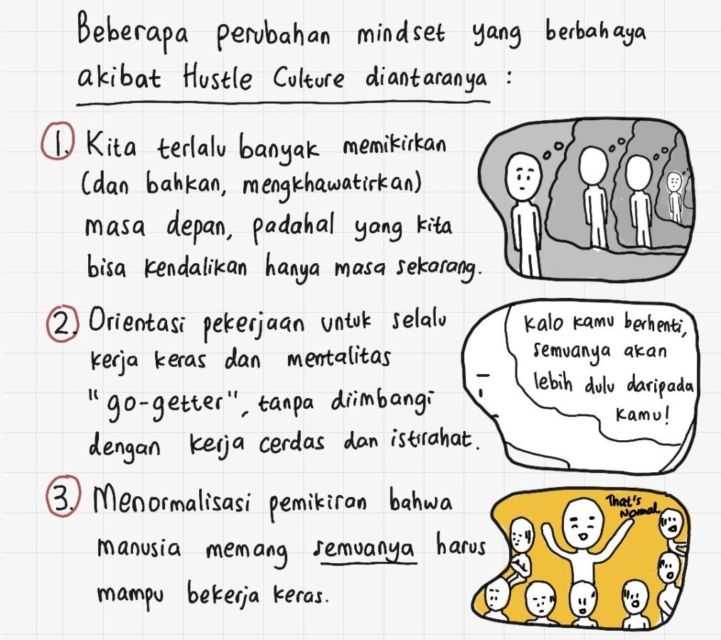 Beberapa perubahan mindset yang berbahaya
akibat Hustle Culture diantaranya :
1. Kita terlalu banyak memikirkan
(dan bahkan, mengkhawatirkan)
masa depan, padahal yang kita
bisa kendalikan hanya masa sekarang.
2. Orientasi pekerjaan untuk selalu
kerja keras dan mentalitas
"go-getter", tanpa diimbangi
dengan kerja cerdas dan istirahat.
Kalo kamu berhenti,
semuanya akan
lebih dulu daripada
kamu!
3. Menormalisasi pemikiran bahwa
manusia memang semuanya harus
mampu bekerja keras.
That's
Normal